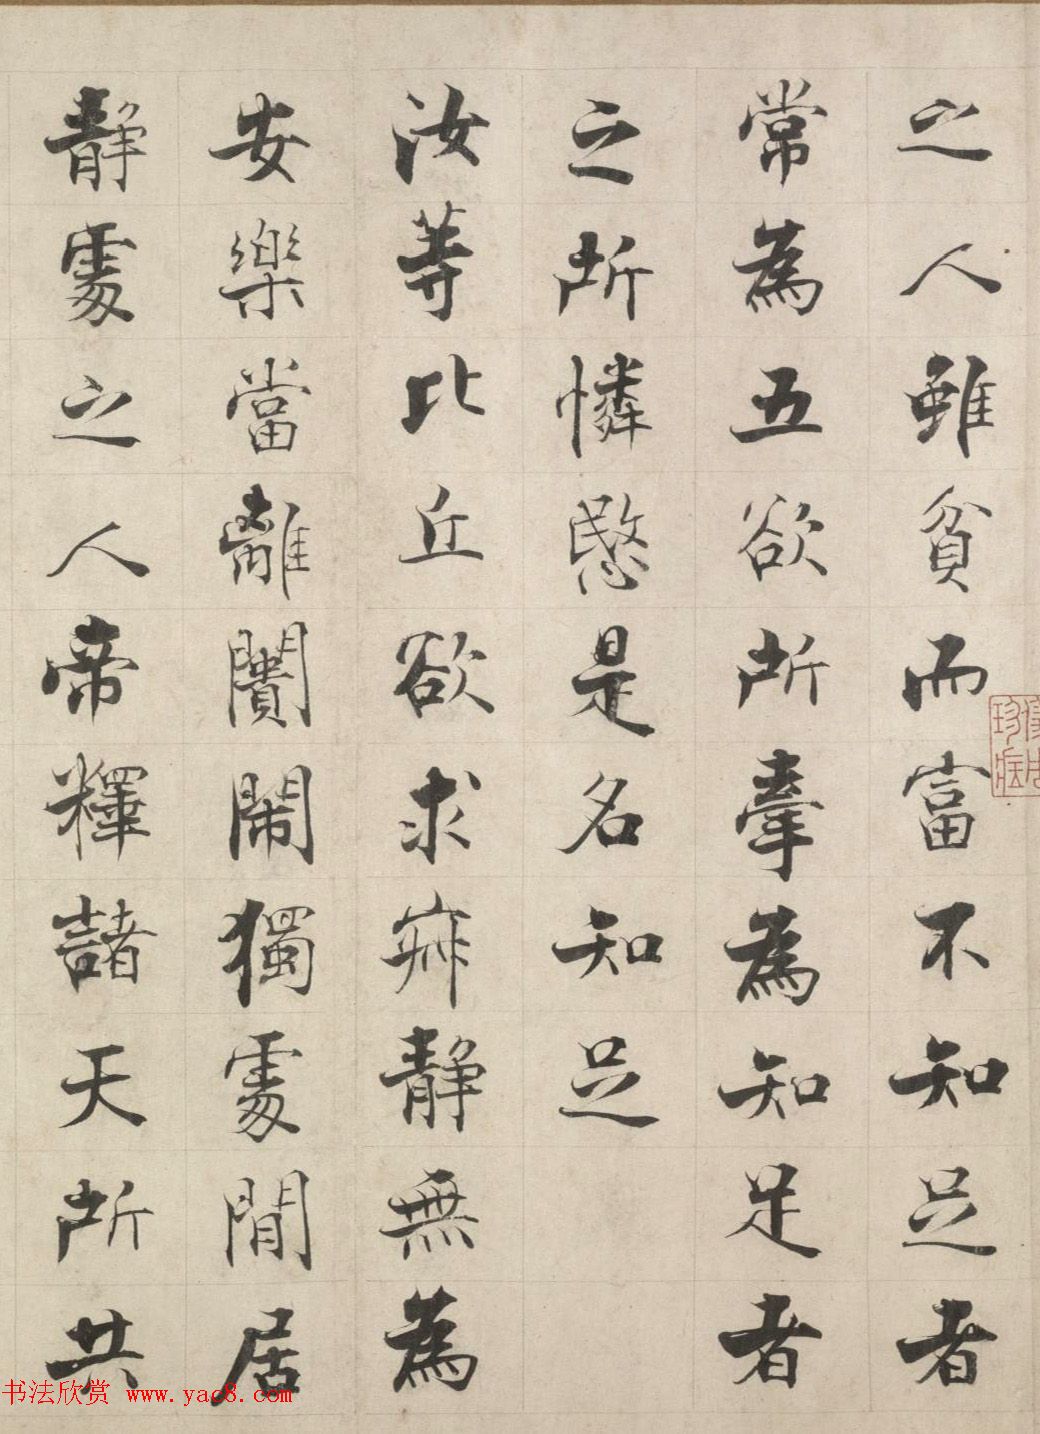 之人雖貧而富不知足者
常為五欲所牽為知足者
之所憐愍是名知足
汝等比丘欲求寂靜無為
安樂當離闠鬧獨處閒居
靜處之人帝釋諸天所共
书法欣赏 www.yac8.com